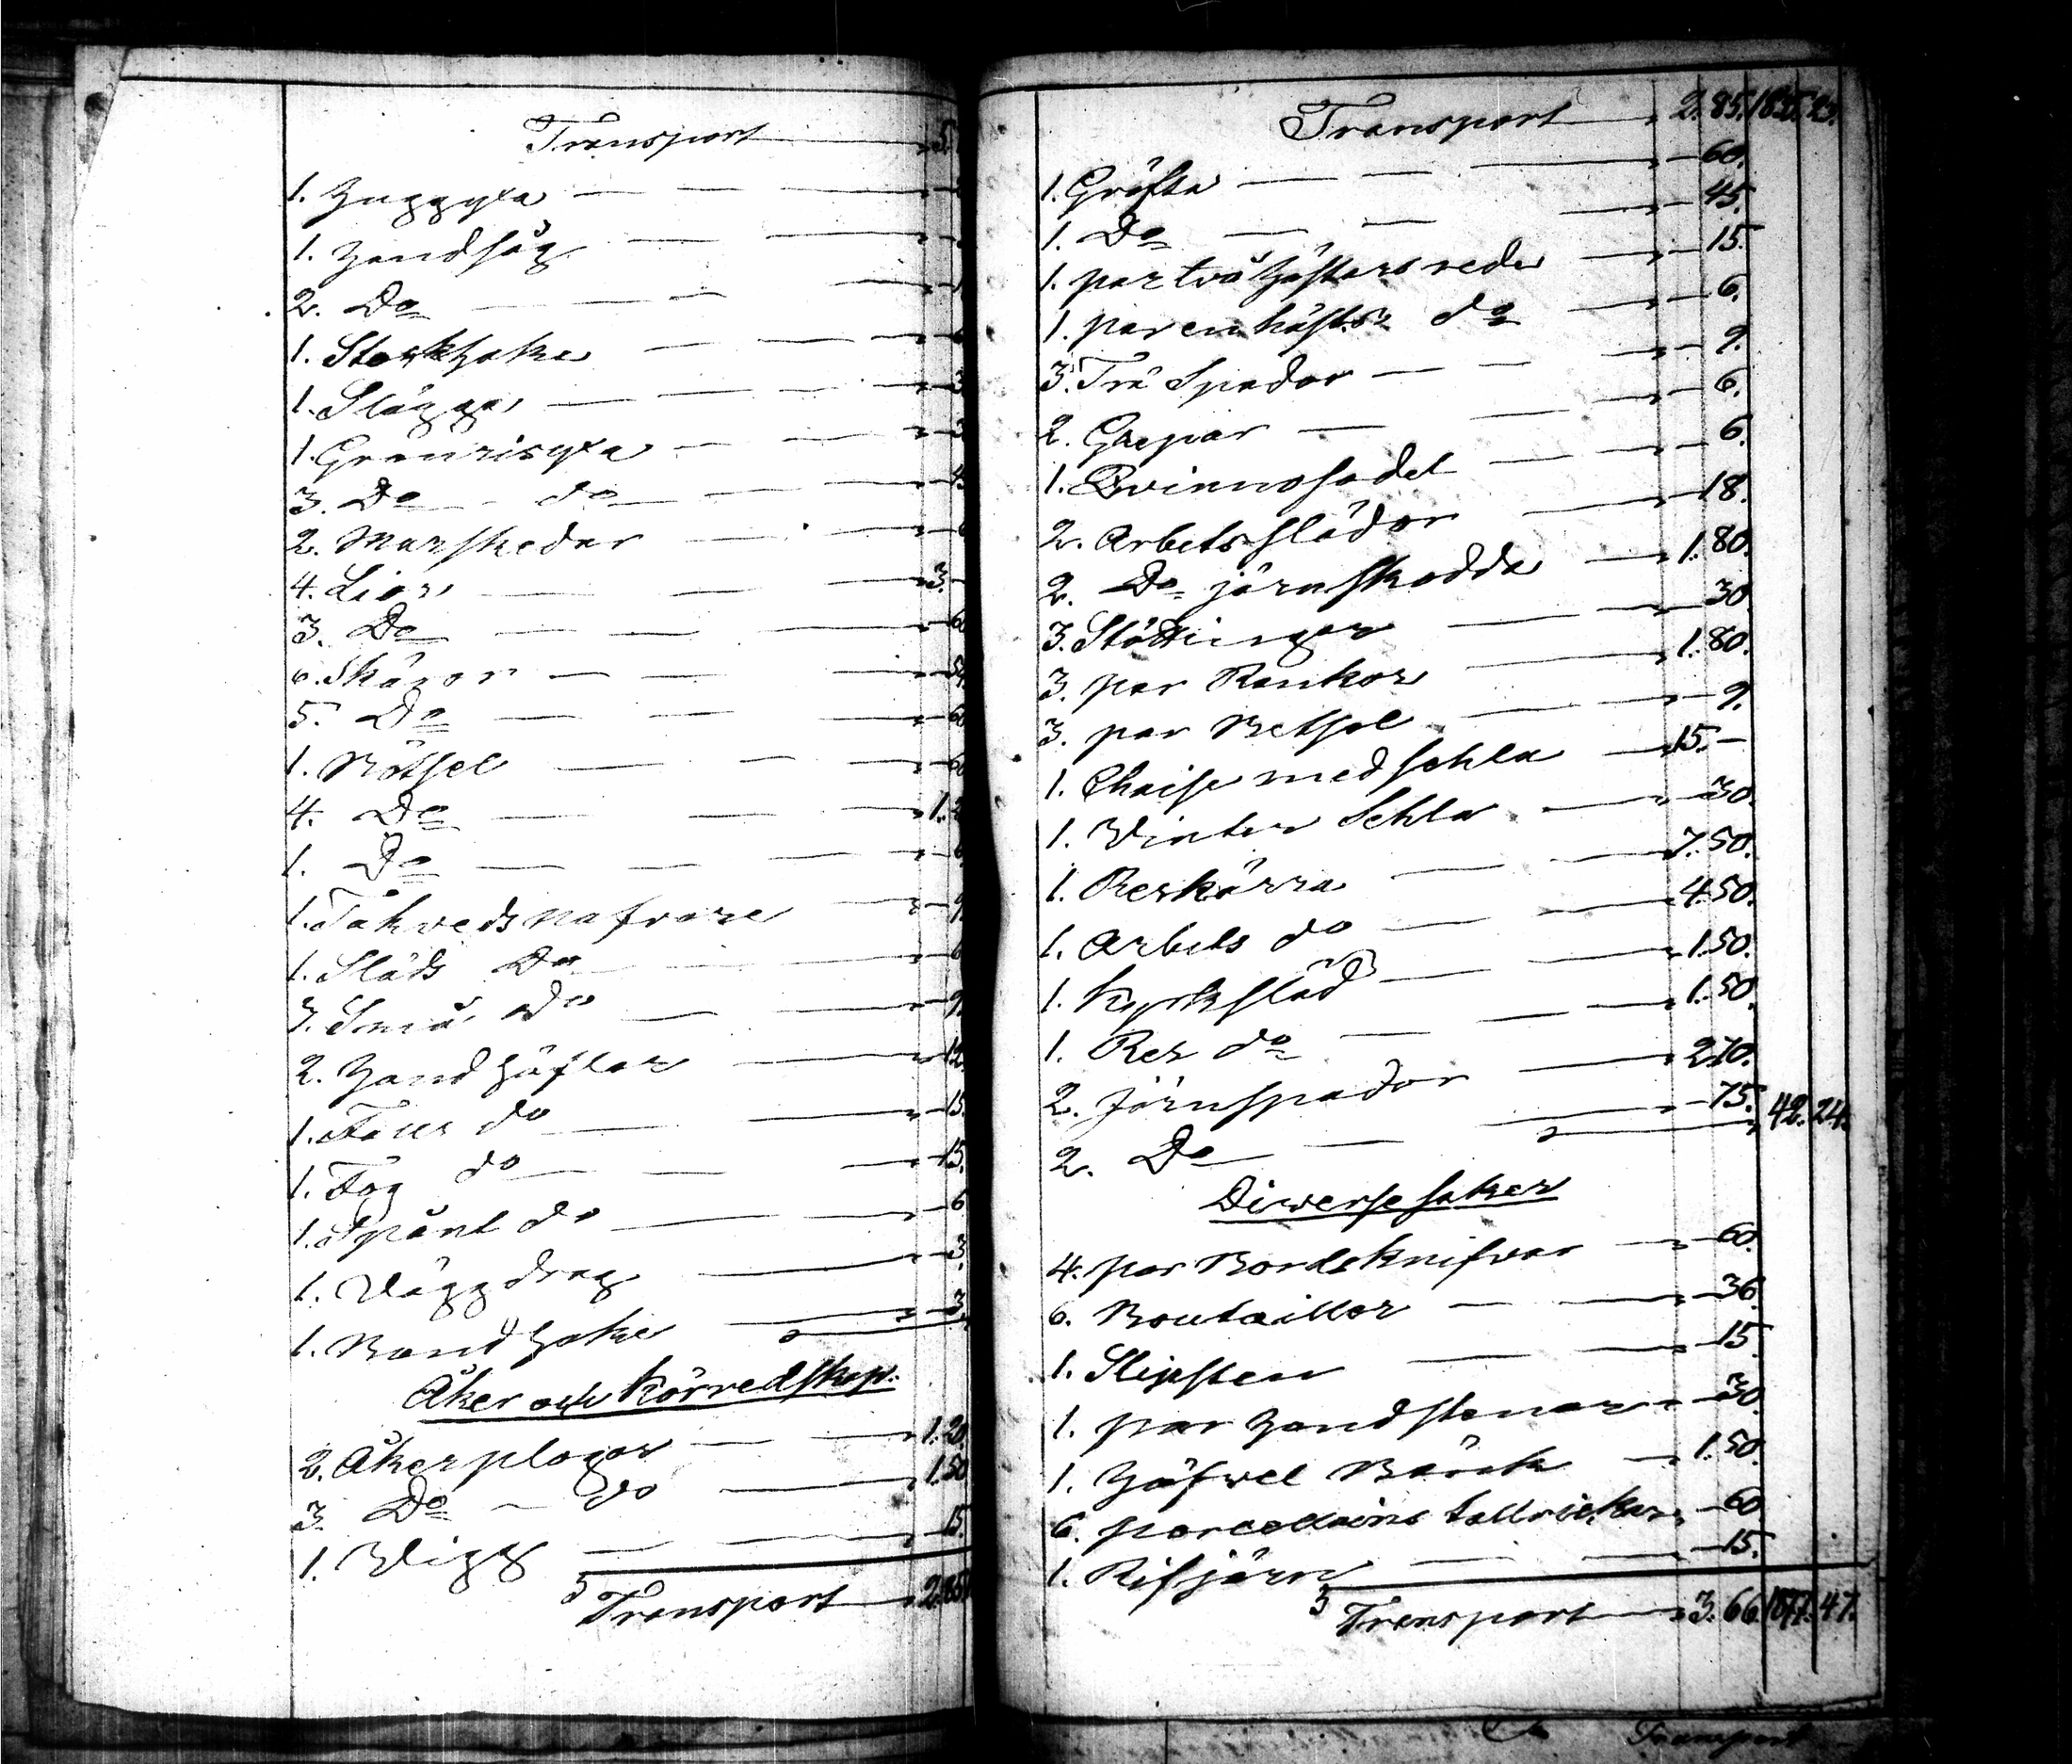 Transport 5.
1. Huggyxa
1. Handsåg
2. Do
1. Stockhake
1. Slägga 3
1. Granrisyxa 3
3. Do do 4
2. Murskedar
4. Liar 3.
3. Do 60
6. Skäror 54
5. Do 60
1. Nötsel 60
4. Do 1.2
1. Do 6
1. Tåhveds nafvare 9
1. Släds Do 6
3. Små do 9
2. Handhöflar 12.
1. Four do 15.
1. Fog do 15.
1. Spånt do 6
1. Väggdrag 3.
1. Bandhake 3.
Åker och Körredskap.
2. Åkerplogar 1.20.
3. Do do 1.50
1. Wigg 15.
Transport 2.85
Transport 2.85. 1835. 23.
1. Gräfta 60.
1. Do 45.
1. par två hästars reder 15.
1. par enhästs do 6.
3. Trä Spador 9.
2. Grepar 6.
1. Qvinnosadel 6.
2. Arbetsslädor 18.
2. Do järnskodda 1.80.
3. Stöttingar 30
3. par Rankor 1.80.
3. par Betsel 9.
1. Chaise med sehla 15.-
1. Winter Sehla 30.
1. Reskärra 7.50.
1. Arbets do 4.50.
1. Kyrksläd 1.50.
1. Res do 1.50.
2. Järnspador 2.10.
2. Do 75. 42. 24.
Diverse saker
4. par Bordsknifvar 60.
6. Boutaillor 36.
1. Slipsten 15.
1. par Handstenar 30.
1. Höfvel Bänck 1.50.
6. porcellains tallrickar 60
1. Rifjärn 15.
Transport 3.66. 1877. 47.
Transport